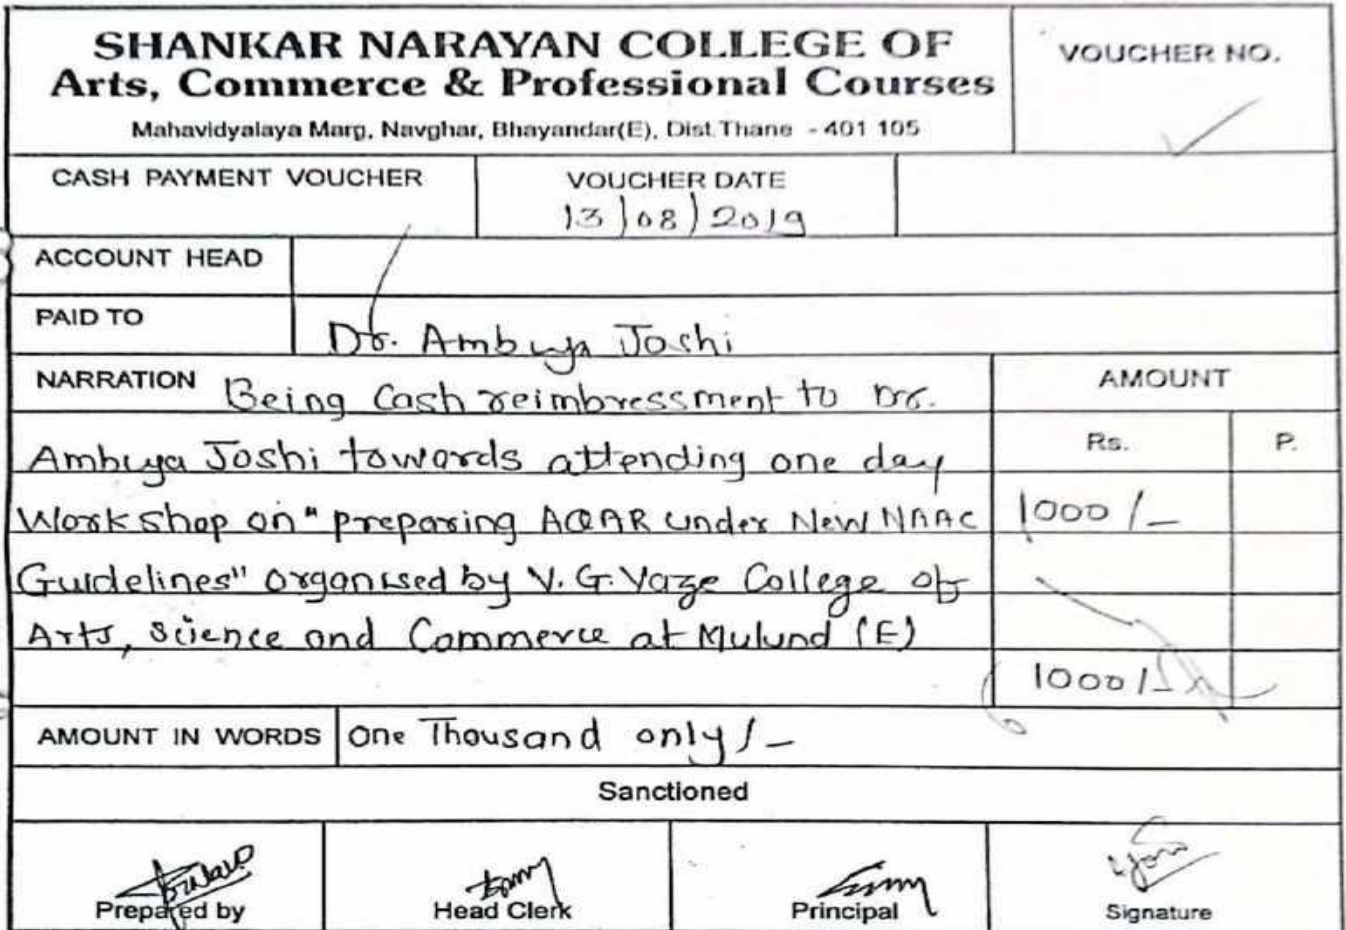 SHANKAR NARAYAN COLLEGE OF
Arts, Commerce & Professional Courses
Mahavidyalaya Marg, Navghar, Bhayandar(E), Dist.Thane - 401 105
VOUCHER NO.
CASH PAYMENT VOUCHER
VOUCHER DATE
13/08/2019
ACCOUNT HEAD
PAID TO
Dr. Ambuja Joshi
NARRATION Being Cash reimbressment to Dr.
AMOUNT
Ambuya Joshi towards attending one day
Rs. P.
Workshop on "preparing AQAR under New NAAC 1000/-
Guidelines" organised by V. G. Vaze College of
Arts, Science and Commerce at Mulund (E)
1000/-
AMOUNT IN WORDS One Thousand only/-
Sanctioned
Prepared by Head Clerk Principal Signature